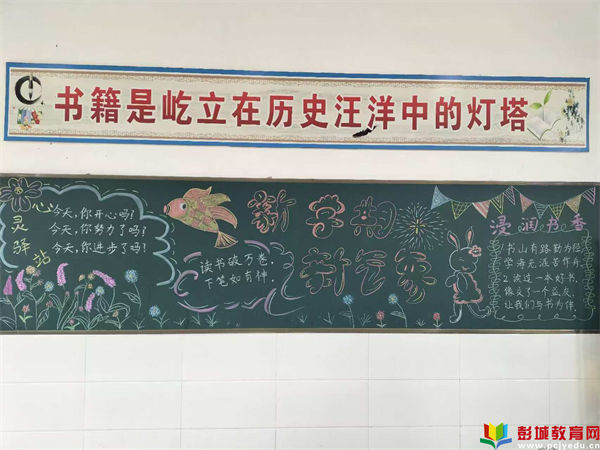 书籍是屹立在历史汪洋中的灯塔
心灵驿站
今天,你开心吗?
今天,你努力了吗?
今天,你进步了吗!
读书破万卷,
下笔如有神。
新学期
新气象
浸润书香
书山有路勤为径
学海无涯苦作舟,
读过一本好书,
像交了一个益友,
让我们与书为伴。
彭城教育网
www.pcjyedu.cn